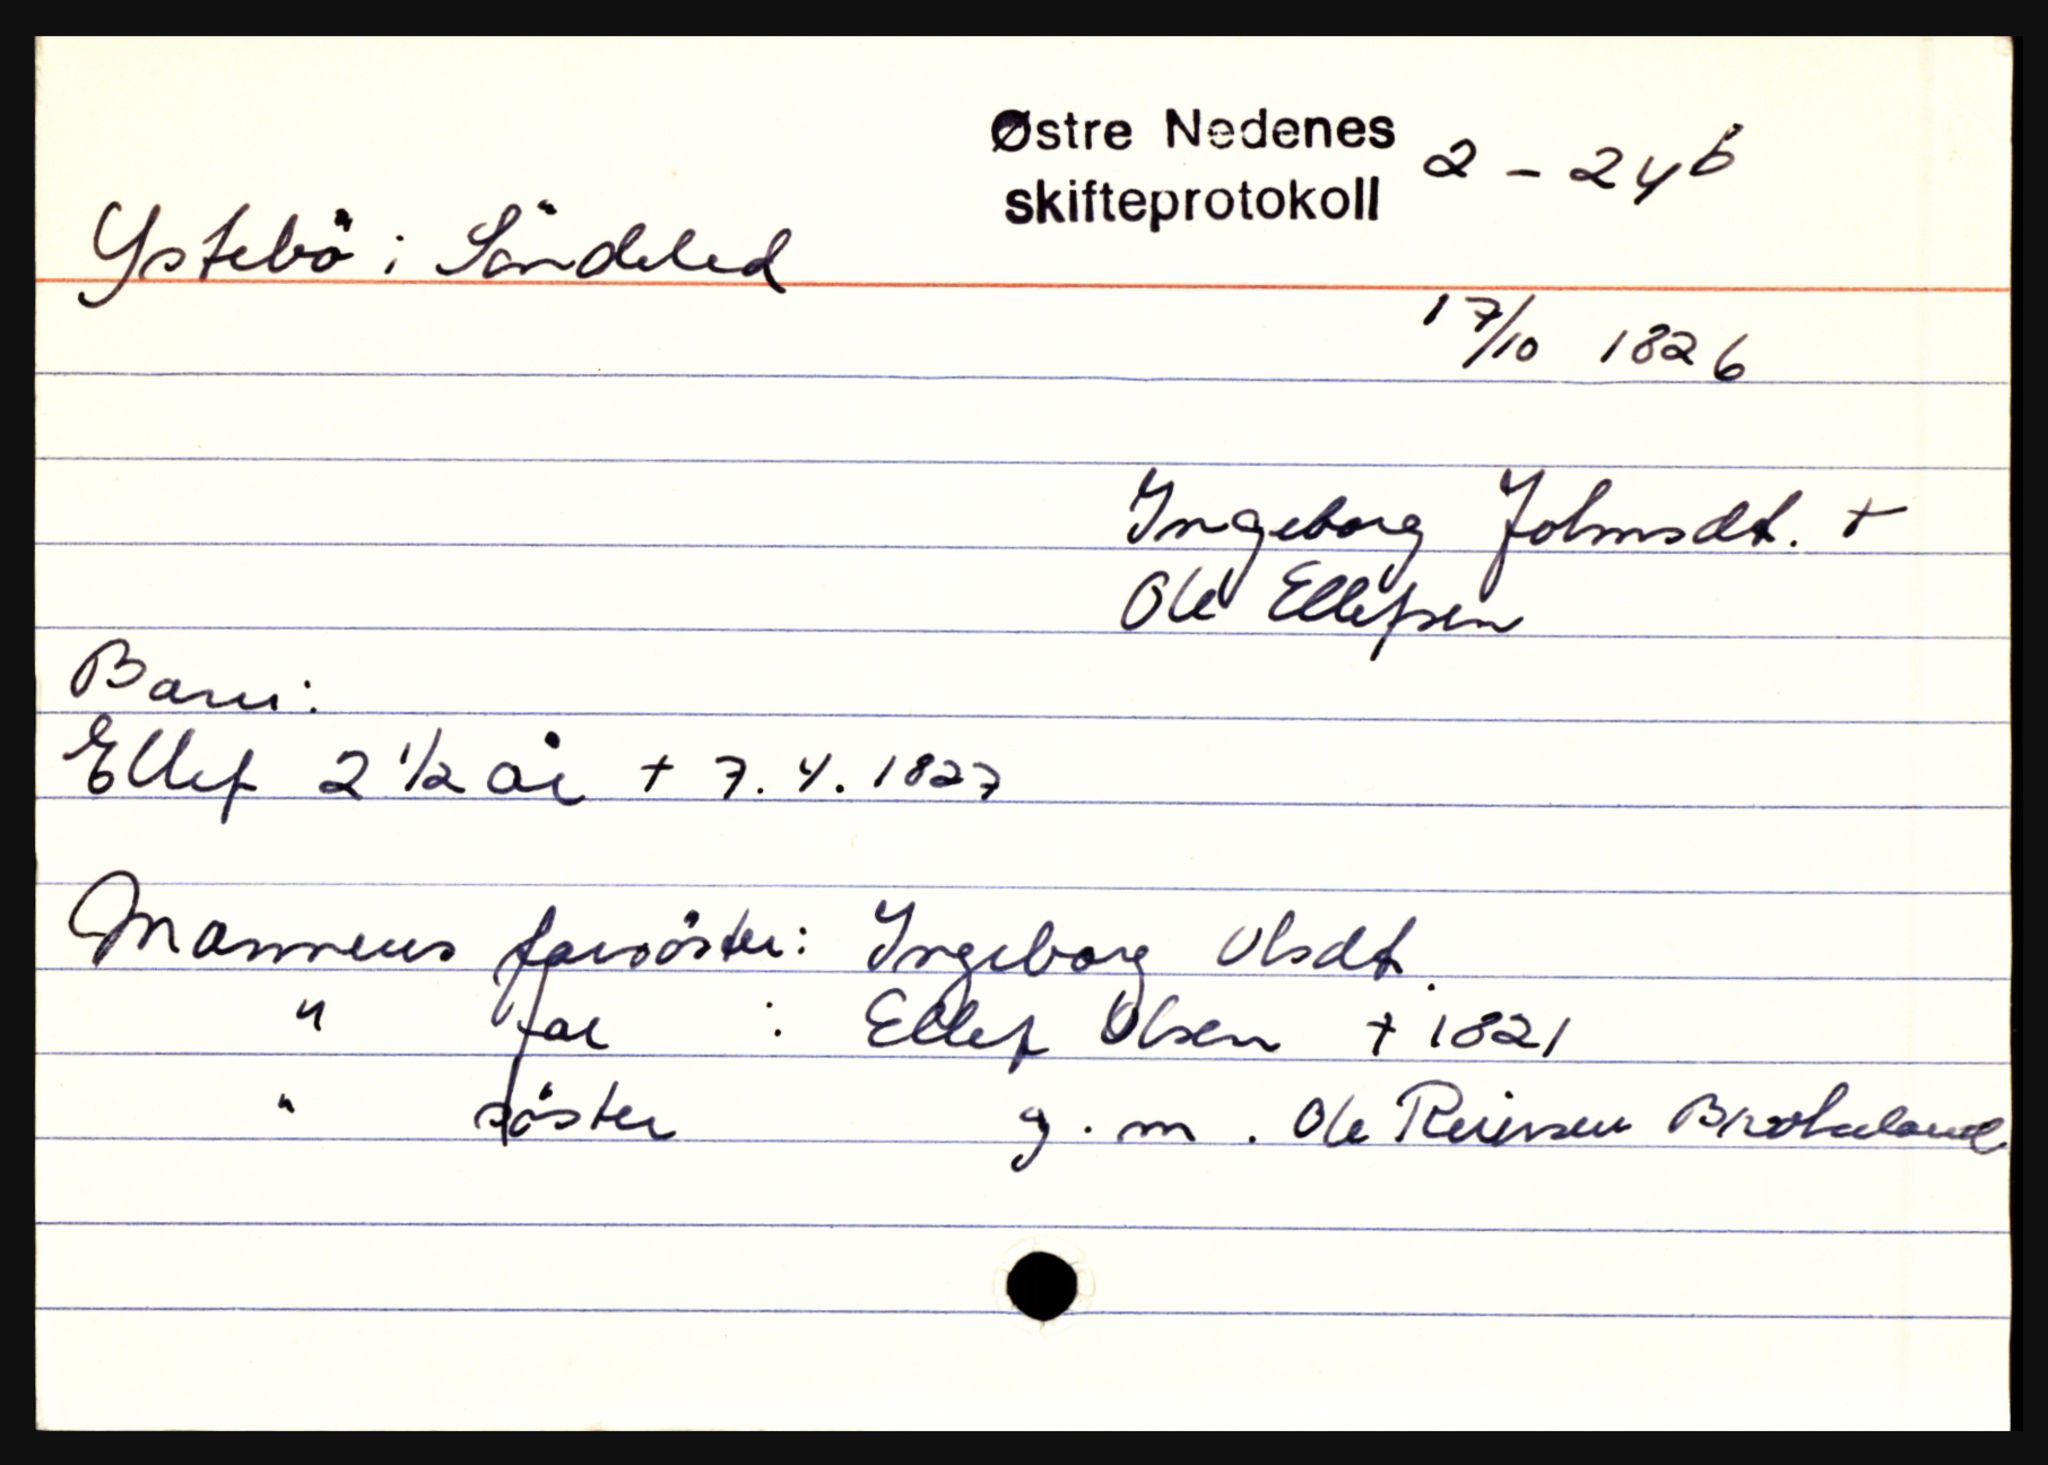 Østre Nedenes
skifteprotokoll 2 - 24b
Ystebö i Söndeled
17/10 1826
Ingeborg Johnsdt. +
Ole Ellefsen
Barn:
Ellef 2 1/2 år + 7. 4. 1827
Mannens farsöster: Ingeborg Olsdt.
" far : Ellef Olsen + 1821
" söster g. m. Ole Reiersen